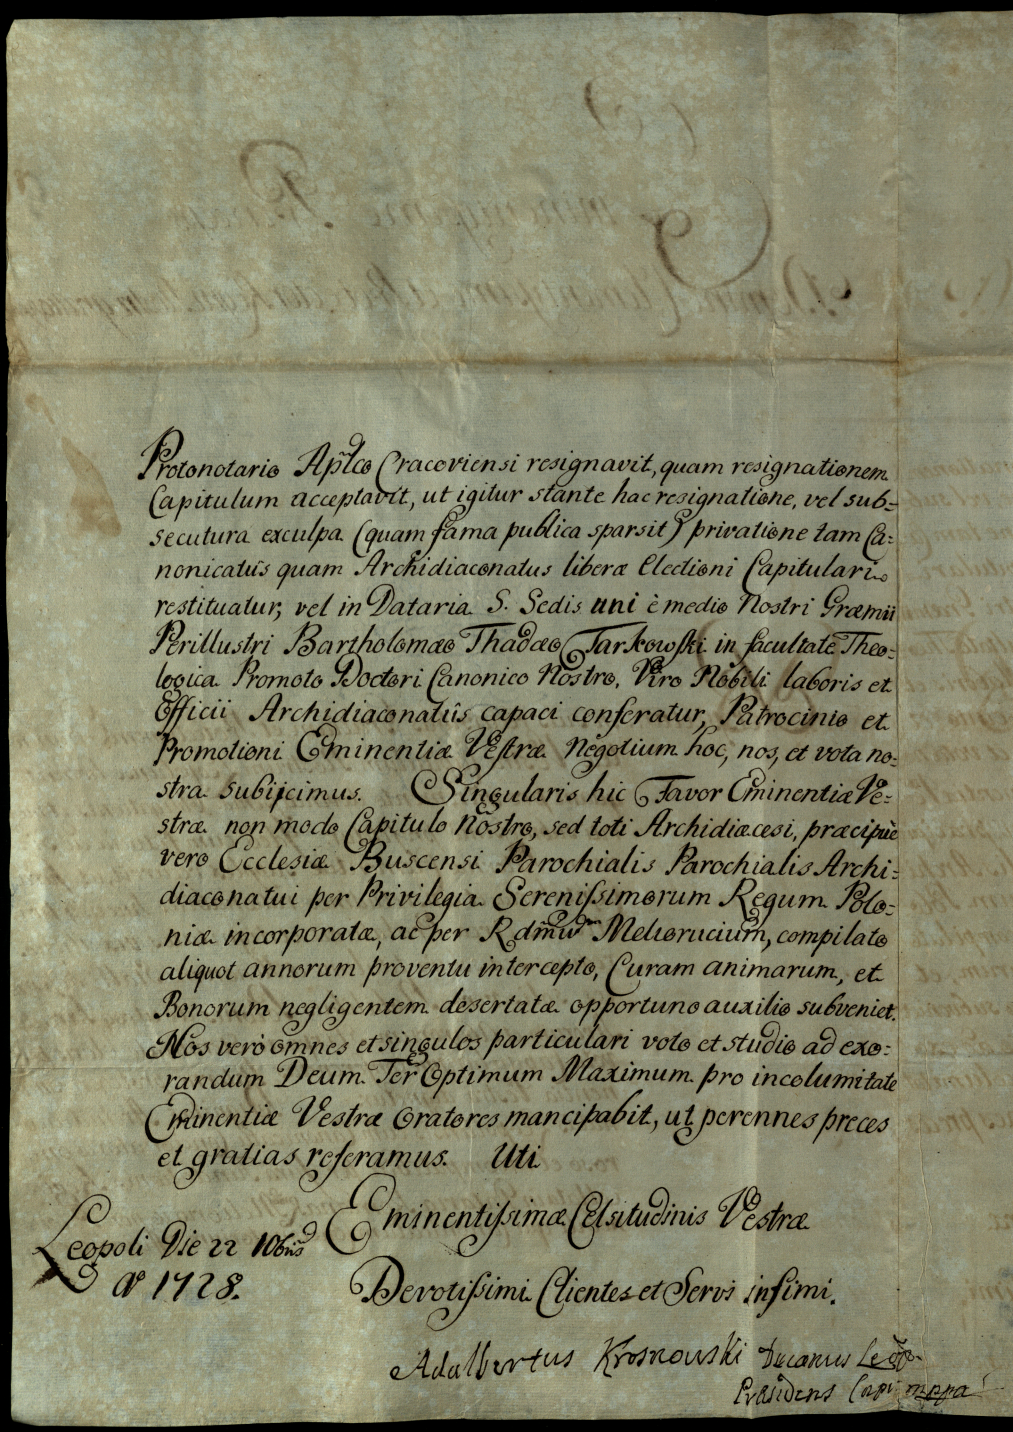 Protonotario Aplco Cracoviensi resignavit, quam resignationem
Capitulum acceptavit, ut igitur stante hac resignatione, vel sub=
secutura exculpa (quam fama publica sparsit) privatione tam Ca=
nonicatûs quam Archidiaconatus liberæ Electioni Capitulari
restituatur, vel in Dataria S. Sedis uni è medio Nostri Græmii
Perillustri Bartholomæo Thadæo Tarkowski in facultate Theo=
logica Promoto Doctori Canonico Nostro, Viro Nobili laboris et
Officii Archidiaconatûs capaci conferatur, Patrocinio et
Promotioni Eminentiæ Vestræ Negotium hoc, nos, et vota no=
stra subijcimus. Singularis hic Favor Eminentiæ Ve=
stræ non modo Capitulo Nostro, sed toti Archidiæcesi, præcipuè
vero Ecclesiæ Buscensi Parochialis Parochialis Archi=
diaconatui per Privilegia Serenissimorum Regum Polo=
niæ incorporatæ, ac per Rdmum Meliorucium, compilato
aliquot annorum proventu intercepto, Curam animarum, et
Bonorum negligentem desertatæ opportuno auxilio subveniet.
Nos verò omnes et singulos particulari voto et studio ad exo=
randum Deum Ter Optimum Maximum pro incolumitate
Eminentiæ Vestræ Oratores mancipabit, ut perennes preces
et gratias referamus. Uti
Eminentissimæ Celsitudinis Vestræ
Leopoli Die 22 10bris
Aº 1728.
Devotissimi Clientes et Servi infimi.
Adalbertus Krosnowski Decanus Leop.
Præsidens